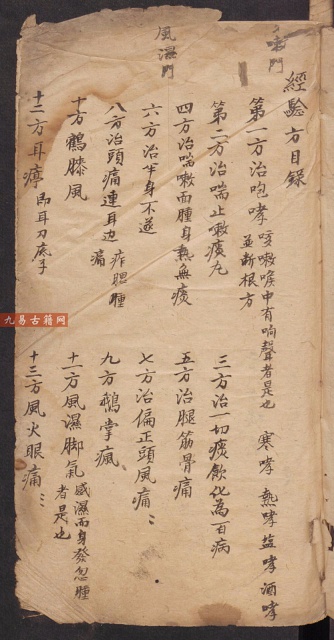 經驗方目錄
第一方治咆哮 咳嗽喉中有响聲者是也 並断根方 寒哮 熱哮 盐哮 酒哮
第二方治喘止嗽痰丸
三方治一切痰飲化為百病
四方治喘嗽而腫身熱無痰
五方治腿筋骨痛
風濕門
六方治半身不遂
七方治偏正頭風痛
八方治頭痛連耳边 痄腮腫
九方鵝掌瘋
十方鶴膝風
十一方風濕脚氣 感濕而身發忽腫者是也
十二方耳 即耳刀底子
十三方風火眼痛
九易古籍网